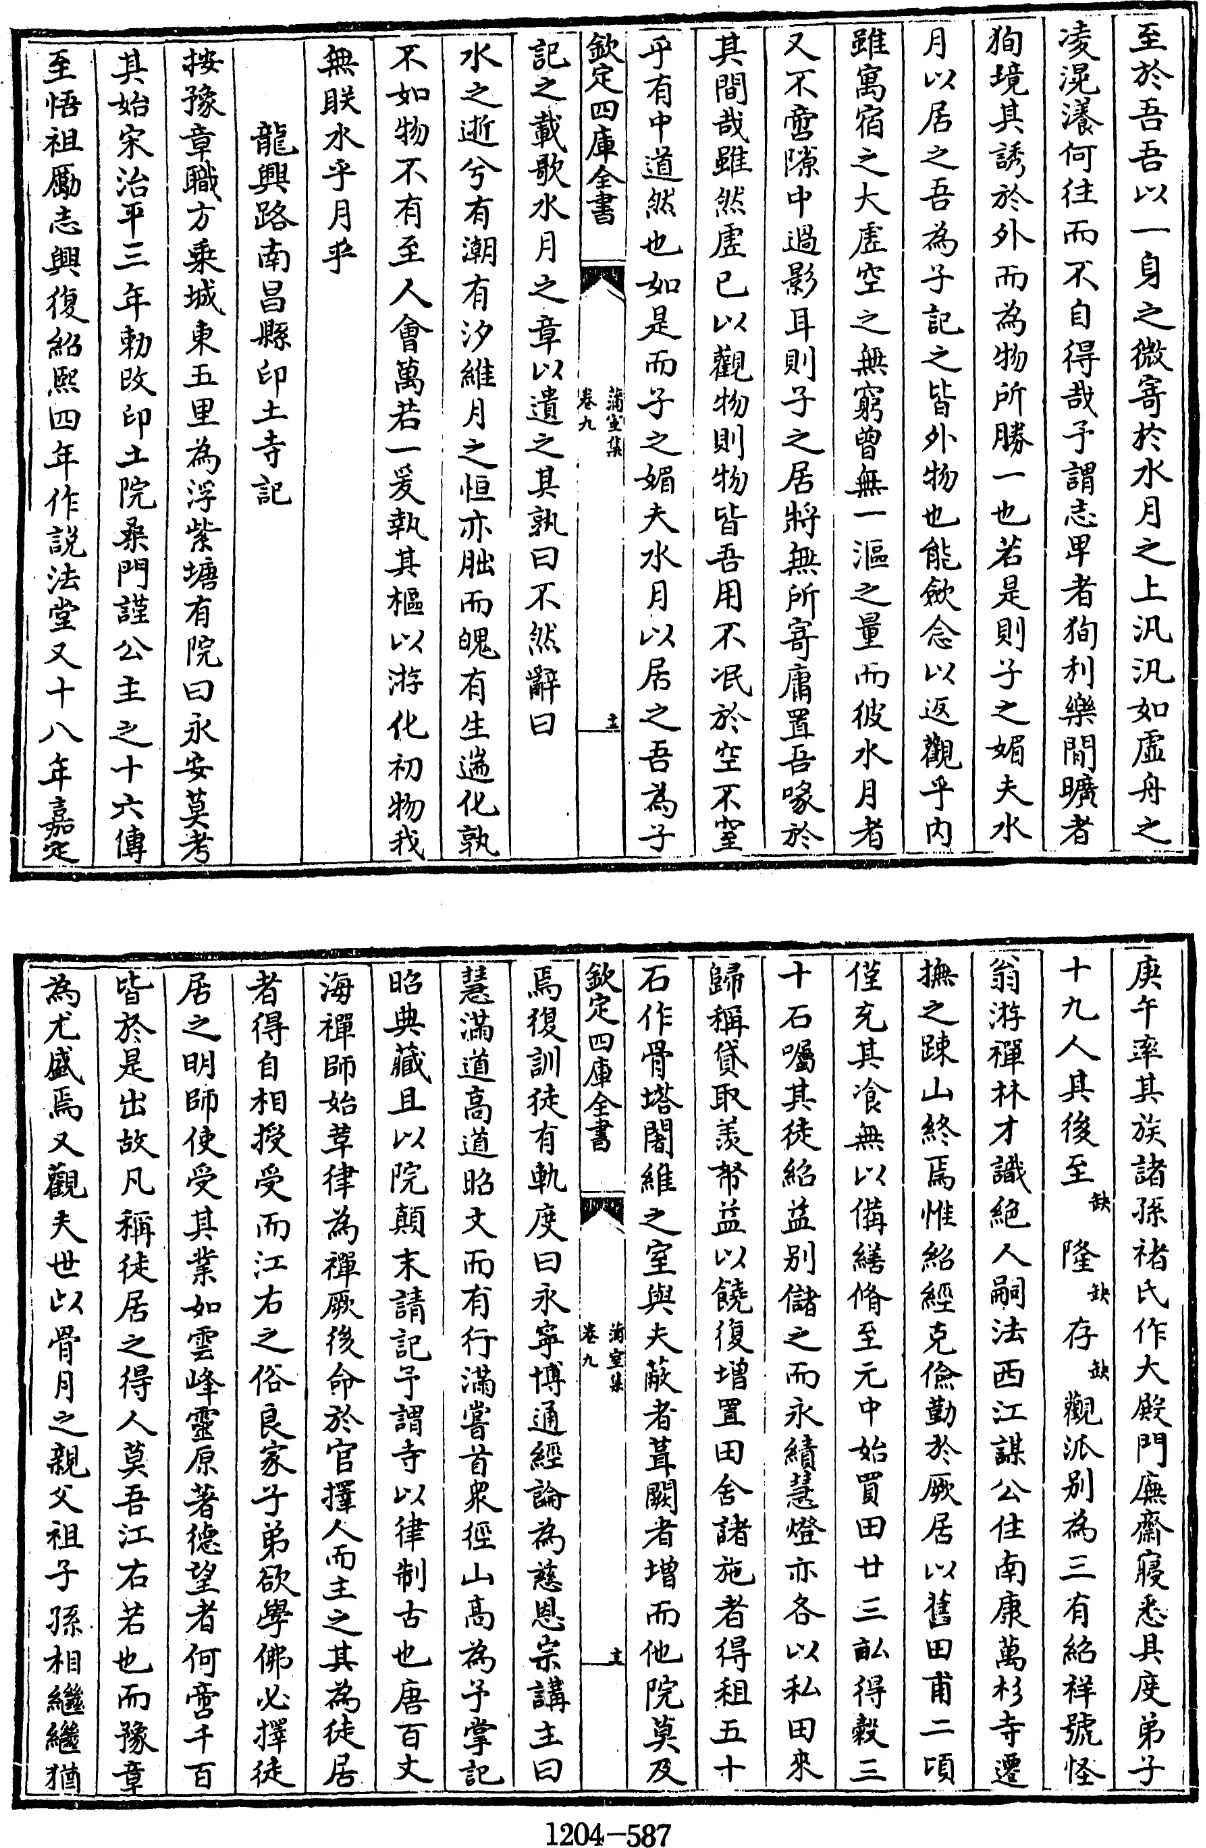 至於吾吾以一身之微寄於水月之上汎汎如虛舟之
凌滉瀁何往而不自得哉予謂志卑者狥利樂閒曠者
狥境其誘於外而為物所勝一也若是則子之媚夫水
月以居之吾為子記之皆外物也能斂念以返觀乎內
雖寓宿之大虛空之無窮曾無一漚之量而彼水月者
又不啻隙中過影耳則子之居將無所寄庸置吾喙於
其間哉雖然虛已以觀物則物皆吾用不泯於空不窒
乎有中道然也如是而子之媚夫水月以居之吾為子
欽定四庫全書
蒲室集
卷九
十一
記之載歌水月之章以遺之其孰曰不然辭曰
水之逝兮有潮有汐維月之恒亦朏而魄有生遄化孰
不如物不有至人會萬若一爰執其樞以游化初物我
無朕水乎月乎
龍興路南昌縣印土寺記
按豫章職方乘城東五里為浮紫塘有院曰永安莫考
其始宋治平三年勅改印土院桑門謹公主之十六傳
至悟祖勵志興復紹熙四年作説法堂又十八年嘉定
庚午率其族諸孫褚氏作大殿門廡齋寢悉具度弟子
十九人其後至 缺 隆 缺 存 缺 觀派別為三有紹祥號怪
翁游禪林才識絶人嗣法西江謀公住南康萬杉寺遷
撫之踈山終焉惟紹經克儉勤於厥居以舊田甫二頃
僅充其飡無以備繕脩至元中始買田廿三畝得穀三
十石囑其徒紹益別儲之而永績慧燈亦各以私田來
歸稱貸取羨帑益以饒復増置田舍諸施者得租五十
石作骨塔闍維之室與夫蔽者葺闕者増而他院莫及
欽定四庫全書
蒲室集
卷九
焉復訓徒有軌度曰永寧博通經論為慈恩宗講主曰
慧滿道高道昭文而有行滿嘗首衆徑山高為予掌記
昭典藏且以院顛末請記予謂寺以律制古也唐百丈
海禪師始革律為禪厥後命於官擇人而主之其為徒居
者得自相授受而江右之俗良家子弟欲學佛必擇徒
居之明師使受其業如雲峰靈原著德望者何啻千百
皆於是出故凡稱徒居之得人莫吾江右若也而豫章
為尤盛焉又觀夫世以骨月之親父祖子孫相繼繼猶
1204-587